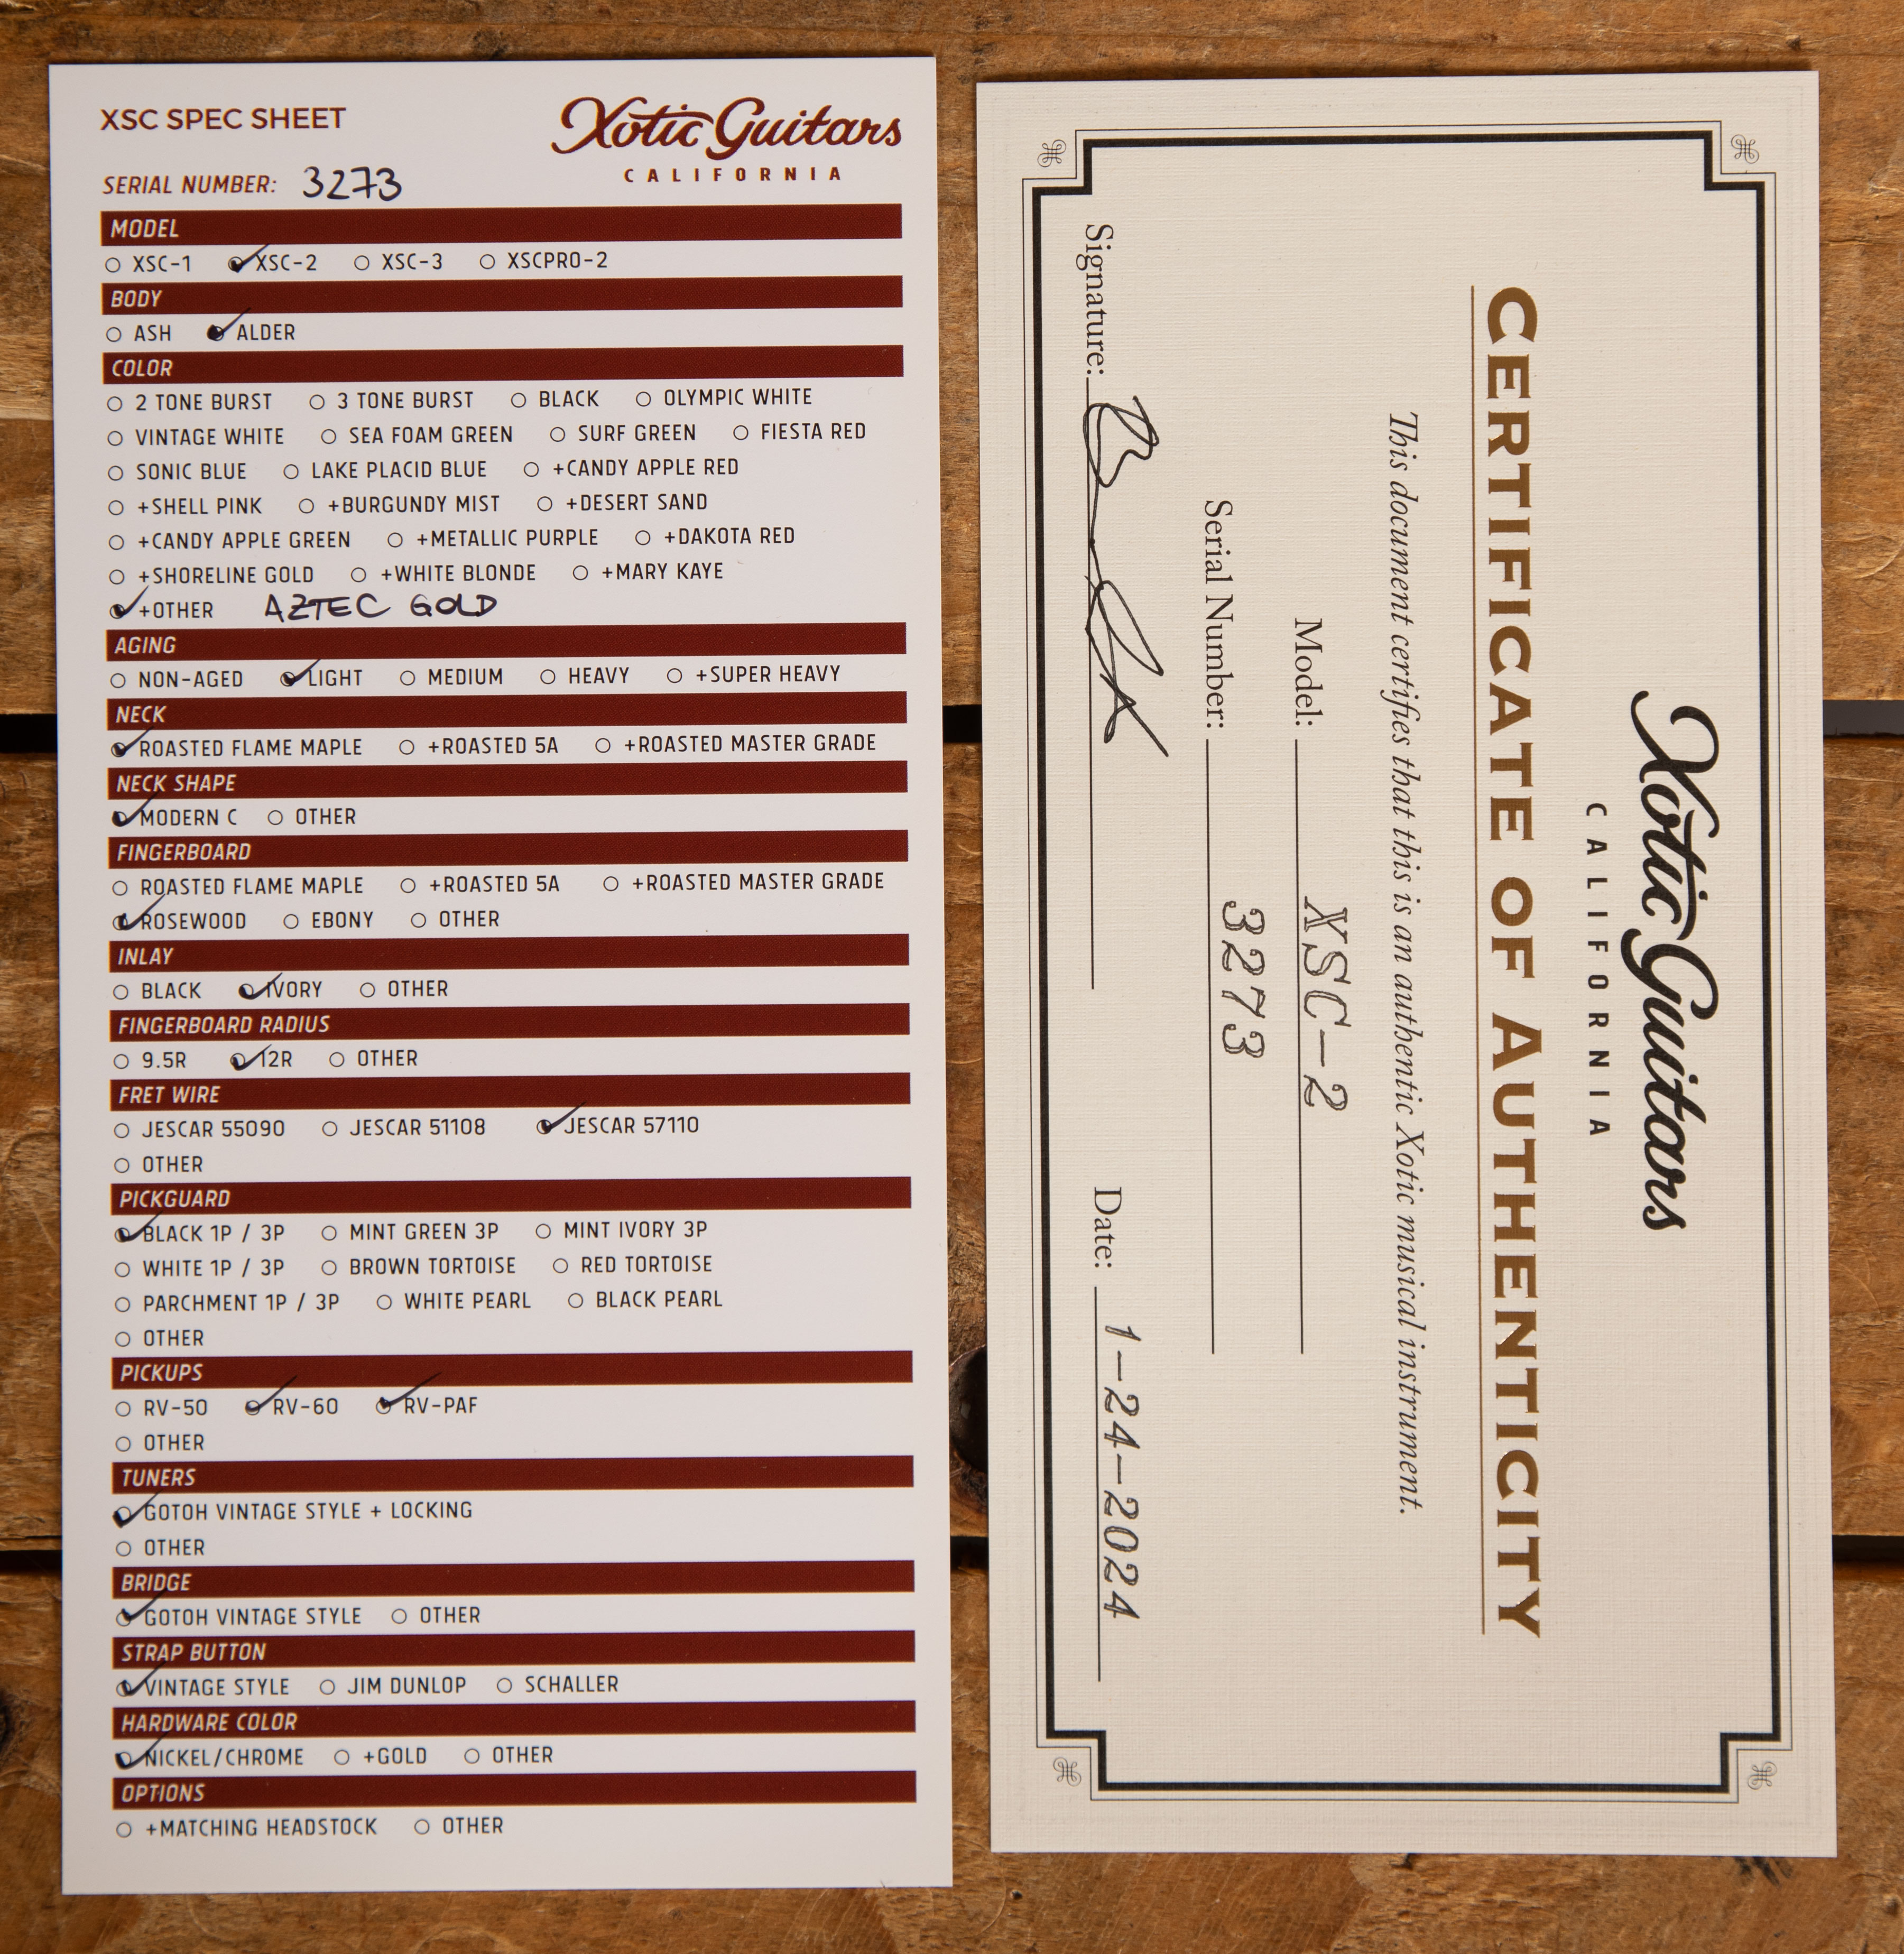 XSC SPEC SHEET
Xotic Guitars
CALIFORNIA
SERIAL NUMBER: 3273
MODEL
XSC-1 XSC-2 XSC-3 XSCPRO-2
BODY
ASH ALDER
COLOR
2 TONE BURST 3 TONE BURST BLACK OLYMPIC WHITE
VINTAGE WHITE SEA FOAM GREEN SURF GREEN FIESTA RED
SONIC BLUE LAKE PLACID BLUE +CANDY APPLE RED
+SHELL PINK +BURGUNDY MIST +DESERT SAND
+CANDY APPLE GREEN +METALLIC PURPLE +DAKOTA RED
+SHORELINE GOLD +WHITE BLONDE +MARY KAYE
+OTHER AZTEC GOLD
AGING
NON-AGED LIGHT MEDIUM HEAVY +SUPER HEAVY
NECK
ROASTED FLAME MAPLE +ROASTED 5A +ROASTED MASTER GRADE
NECK SHAPE
MODERN C OTHER
FINGERBOARD
ROASTED FLAME MAPLE +ROASTED 5A +ROASTED MASTER GRADE
ROSEWOOD EBONY OTHER
INLAY
BLACK IVORY OTHER
FINGERBOARD RADIUS
9.5R 12R OTHER
FRET WIRE
JESCAR 55090 JESCAR 51108 JESCAR 57110
OTHER
PICKGUARD
BLACK 1P / 3P MINT GREEN 3P MINT IVORY 3P
WHITE 1P / 3P BROWN TORTOISE RED TORTOISE
PARCHMENT 1P / 3P WHITE PEARL BLACK PEARL
OTHER
PICKUPS
RV-50 RV-60 RV-PAF
OTHER
TUNERS
GOTOH VINTAGE STYLE + LOCKING
OTHER
BRIDGE
GOTOH VINTAGE STYLE OTHER
STRAP BUTTON
VINTAGE STYLE JIM DUNLOP SCHALLER
HARDWARE COLOR
NICKEL/CHROME +GOLD OTHER
OPTIONS
+MATCHING HEADSTOCK OTHER
Xotic Guitars
CALIFORNIA
CERTIFICATE OF AUTHENTICITY
This document certifies that this is an authentic Xotic musical instrument.
Model: XSC-2
Serial Number: 3273
Signature: Date: 1-24-2024